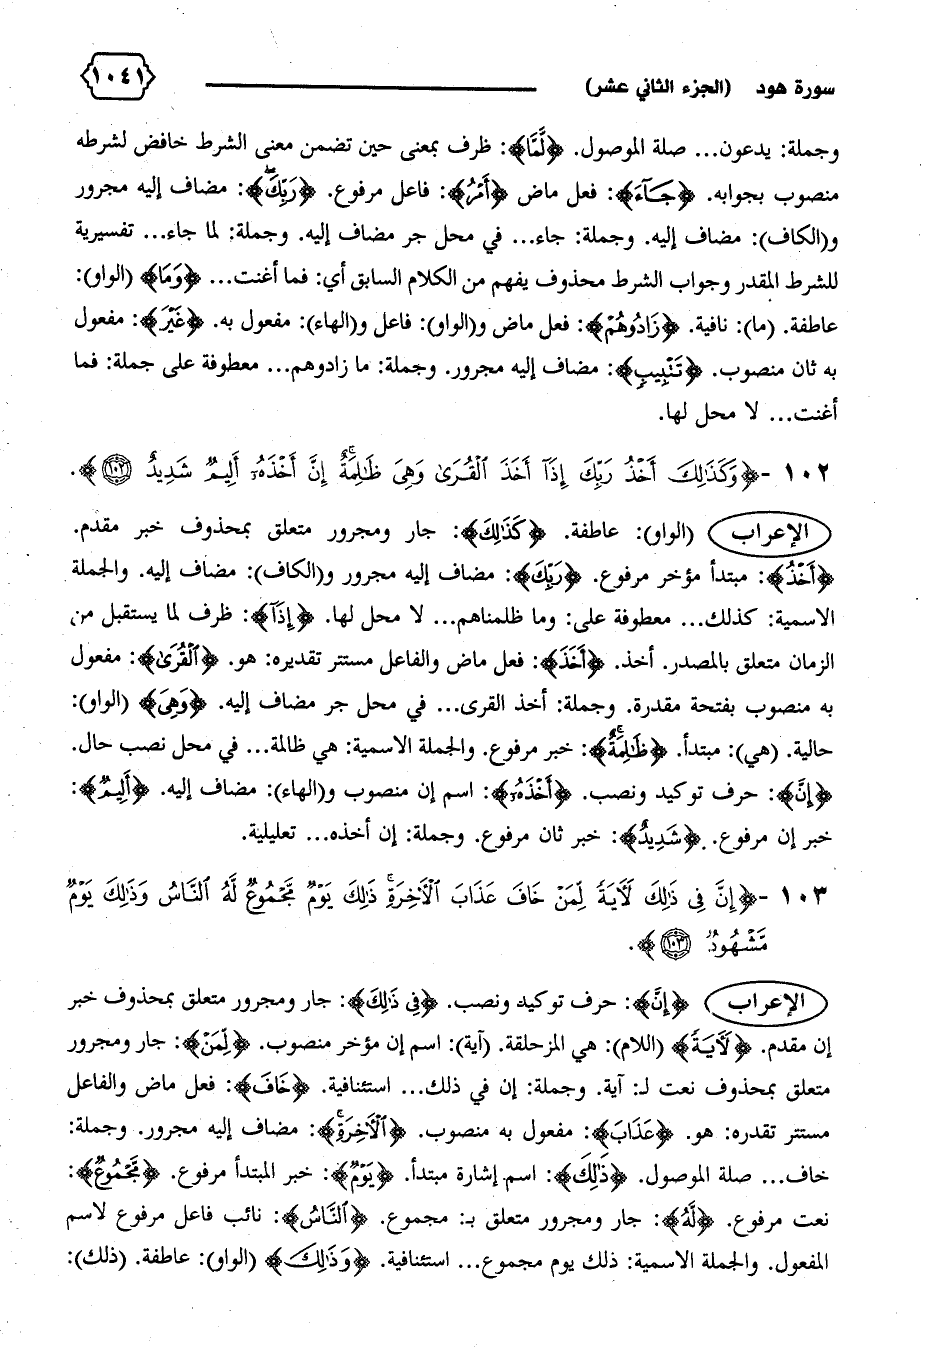 سورة هود (الجزء الثاني عشر) ١٠٤١
وجملة: يدعون... صلة الموصول. ﴿لَّمَّا﴾: ظرف بمعنى حين تضمن معنى الشرط خافض لشرطه
منصوب بجوابه. ﴿جَآءَ﴾: فعل ماض ﴿أَمْرُ﴾: فاعل مرفوع. ﴿رَبِّكَ﴾: مضاف إليه مجرور
و(الكاف): مضاف إليه. وجملة: جاء... في محل جر مضاف إليه. وجملة: لما جاء... تفسيرية
للشرط المقدر وجواب الشرط محذوف يفهم من الكلام السابق أي: فما أغنت... ﴿وَمَا﴾ (الواو):
عاطفة. (ما): نافية. ﴿زَادُوهُمْ﴾: فعل ماض و(الواو): فاعل و(الهاء): مفعول به. ﴿غَيْرَ﴾: مفعول
به ثان منصوب. ﴿تَتْبِيبٍ﴾: مضاف إليه مجرور. وجملة: ما زادوهم... معطوفة على جملة: فما
أغنت... لا محل لها.
١٠٢ -﴿وَكَذَٰلِكَ أَخْذُ رَبِّكَ إِذَآ أَخَذَ ٱلْقُرَىٰ وَهِىَ ظَٰلِمَةٌ ۚ إِنَّ أَخْذَهُۥٓ أَلِيمٌ شَدِيدٌ ١٠٢﴾.
الإعراب (الواو): عاطفة. ﴿كَذَٰلِكَ﴾: جار ومجرور متعلق بمحذوف خبر مقدم.
﴿أَخْذُ﴾: مبتدأ مؤخر مرفوع. ﴿رَبِّكَ﴾: مضاف إليه مجرور و(الكاف): مضاف إليه. والجملة
الاسمية: كذلك... معطوفة على: وما ظلمناهم... لا محل لها. ﴿إِذَآ﴾: ظرف لما يستقبل من
الزمان متعلق بالمصدر. أخذ. ﴿أَخَذَ﴾: فعل ماض والفاعل مستتر تقديره: هو. ﴿ٱلْقُرَىٰ﴾: مفعول
به منصوب بفتحة مقدرة. وجملة: أخذ القرى... في محل جر مضاف إليه. ﴿وَهِىَ﴾ (الواو):
حالية. (هي): مبتدأ. ﴿ظَٰلِمَةٌ ۚ﴾: خبر مرفوع. والجملة الاسمية: هي ظالمة... في محل نصب حال.
﴿إِنَّ﴾: حرف توكيد ونصب. ﴿أَخْذَهُۥٓ﴾: اسم إن منصوب و(الهاء): مضاف إليه. ﴿أَلِيمٌ﴾:
خبر إن مرفوع. ﴿شَدِيدٌ﴾: خبر ثان مرفوع. وجملة: إن أخذه... تعليلية.
١٠٣ -﴿إِنَّ فِى ذَٰلِكَ لَءَايَةً لِّمَنْ خَافَ عَذَابَ ٱلْءَاخِرَةِ ۚ ذَٰلِكَ يَوْمٌ مَّجْمُوعٌ لَّهُ ٱلنَّاسُ وَذَٰلِكَ يَوْمٌ
مَّشْهُودٌ ١٠٣﴾.
الإعراب ﴿إِنَّ﴾: حرف توكيد ونصب. ﴿فِى ذَٰلِكَ﴾: جار ومجرور متعلق بمحذوف خبر
إن مقدم. ﴿لَءَايَةً﴾ (اللام): هي المزحلقة. (آية): اسم إن مؤخر منصوب. ﴿لِّمَنْ﴾: جار ومجرور
متعلق بمحذوف نعت لـ: آية. وجملة: إن في ذلك... استئنافية. ﴿خَافَ﴾: فعل ماض والفاعل
مستتر تقديره: هو. ﴿عَذَابَ﴾: مفعول به منصوب. ﴿ٱلْءَاخِرَةِ ۚ﴾: مضاف إليه مجرور. وجملة:
خاف... صلة الموصول. ﴿ذَٰلِكَ﴾: اسم إشارة مبتدأ. ﴿يَوْمٌ﴾: خبر المبتدأ مرفوع. ﴿مَّجْمُوعٌ﴾:
نعت مرفوع. ﴿لَّهُ﴾: جار ومجرور متعلق بـ: مجموع. ﴿ٱلنَّاسُ﴾: نائب فاعل مرفوع لاسم
المفعول. والجملة الاسمية: ذلك يوم مجموع... استئنافية. ﴿وَذَٰلِكَ﴾ (الواو): عاطفة. (ذلك):